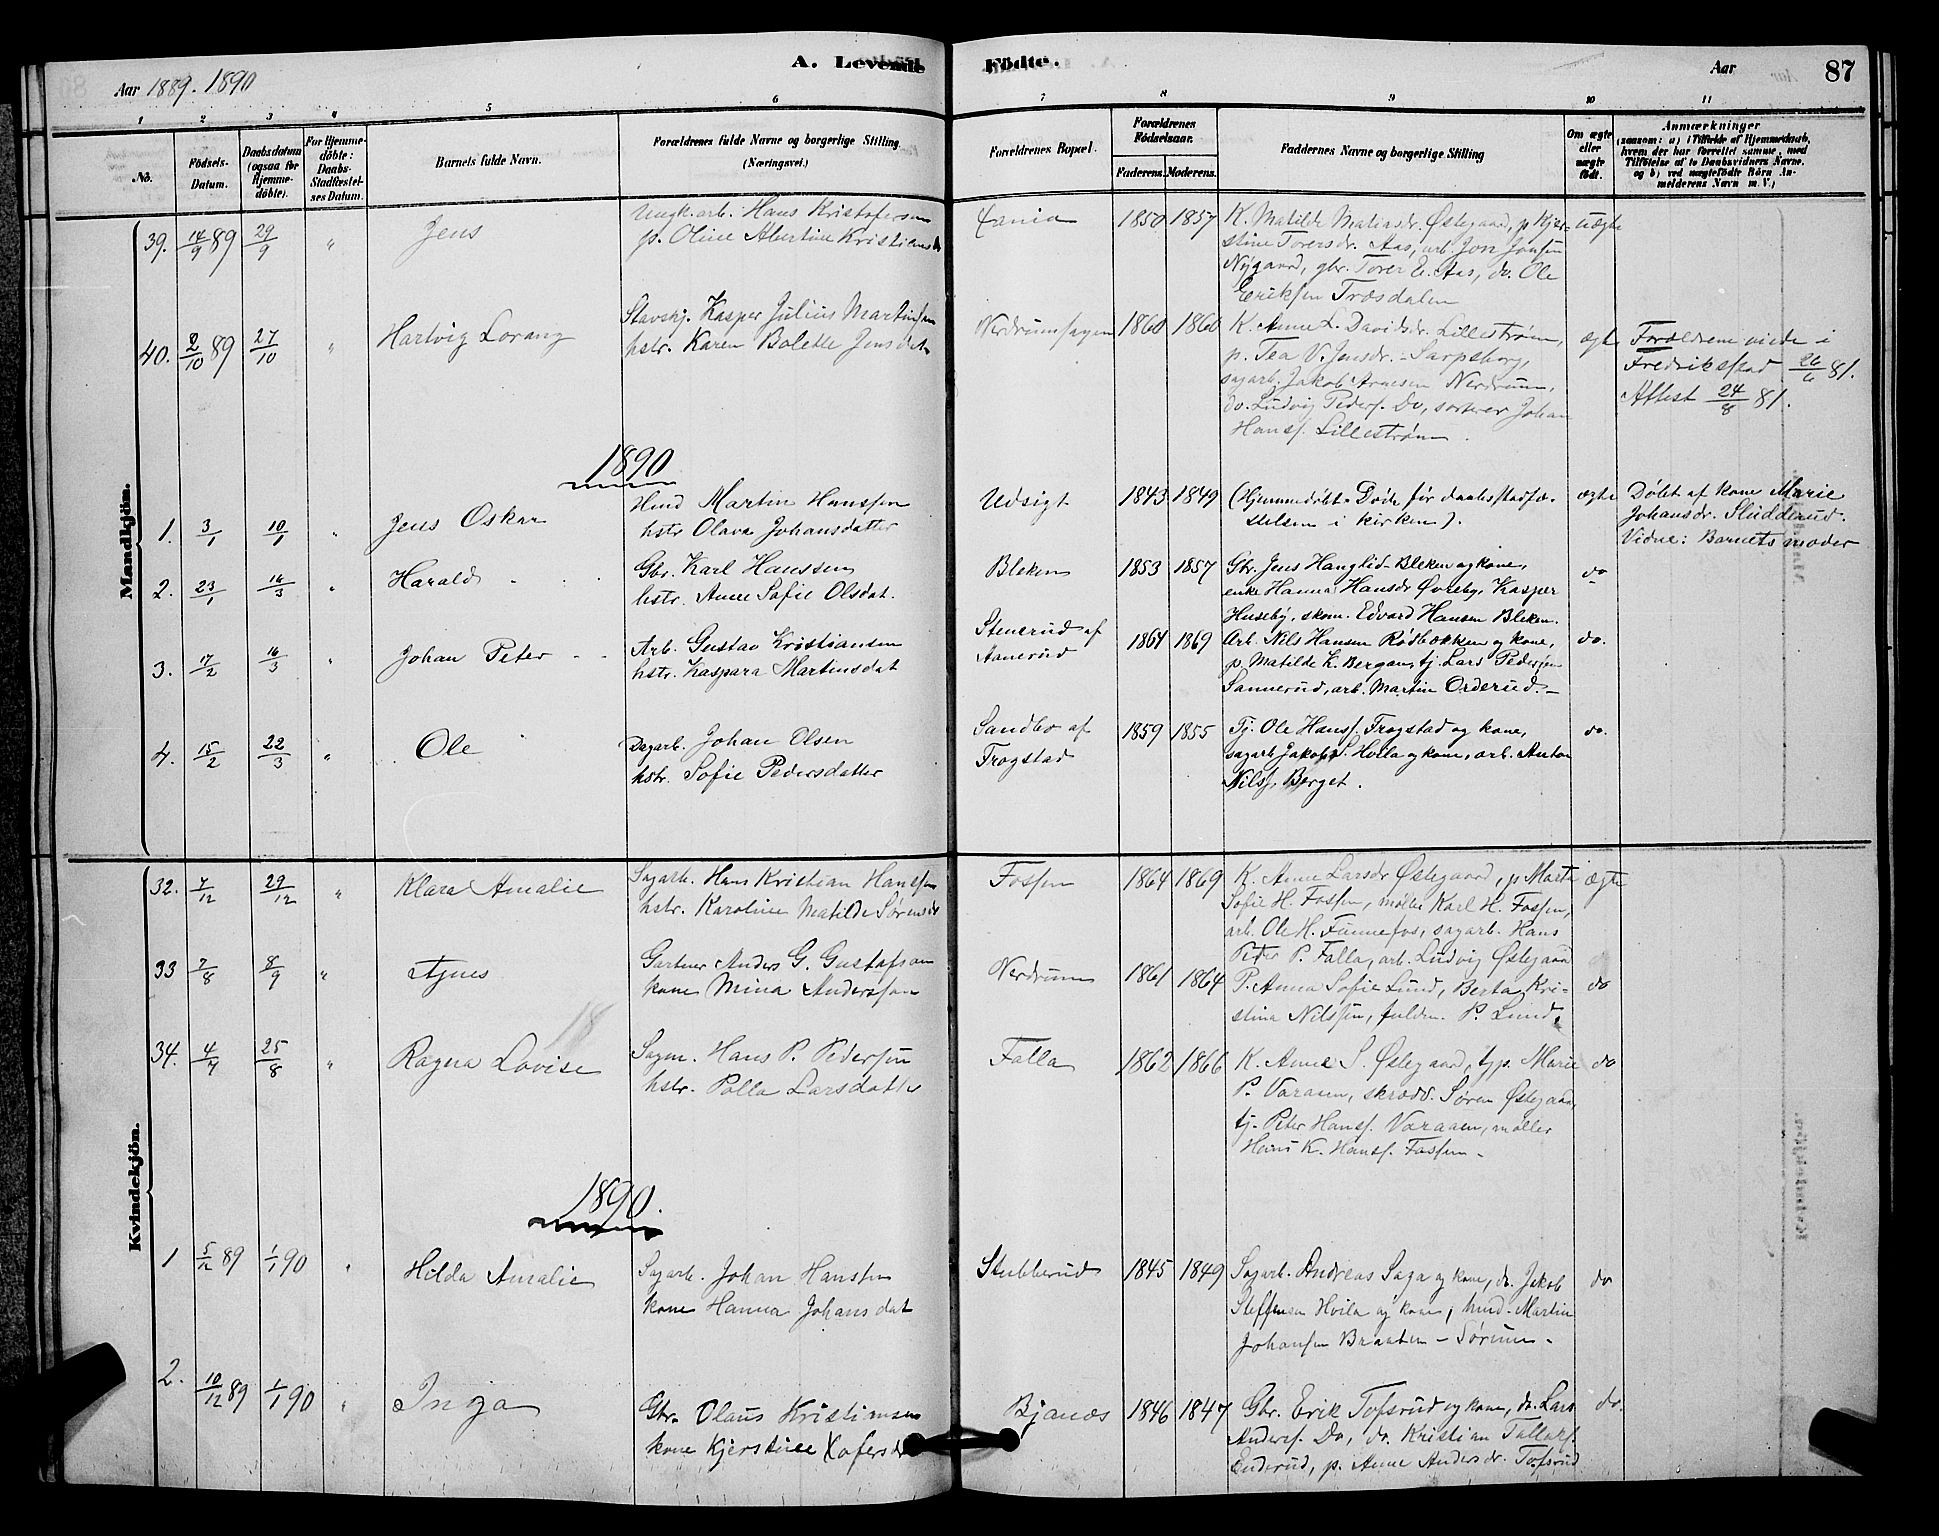 Aar 1889. 1890
A. Levende Födte.
Aar
87
1 2 3 4 5 6 7 8 9 10 11
No.
Födsels-Datum.
Daabsdatum (ogsaa for Hjemmedöbte).
For Hjemmedöbte: Daabs-Stadfestelses Datum.
Barnets fulde Navn.
Forældrenes fulde Navne og borgerlige Stilling (Næringsvei.)
Forældrenes Bopæl.
Forældrenes Födselsaar.
Faderens. Moderens.
Faddernes Navne og borgerlige Stilling
Om ægte eller uægte födt.
Anmærkninger
(saasom: a) i Tilfælde af Hjemmedaab, hvem der har forrettet samme, med Tilföielse af to Daabsvidners Navne. og b) ved uægtefödte Börn Anmelderens Navn m. V.)
Mandkjön.
39. 14/9 89 29/9 " Jens
Ungk. arb. Hans Kristofersen
p. Oline Abertine Kristiansd.
1850 1857
K. Matilde Matiasdr. Østegaard, p. Kjer-
stine Torersdr. Aas, arb. Jon Jonsen
Nygaard, gbr. Torer E. Aas, do. Ole
Eriksen Træsdalen
uægte
40. 2/10 89 27/10 " Hartvig Lorang
Stavskj. Kasper Julius Martinsen
hstr. Karen Bolette Jensdat.
Nerdrumsagen 1860 1860
K. Anne L. Davidsdr. Lillestrøm,
p. Tea V. Jensdr. - Sarpsborg,
sagarb. Jakob Arnesen Nerdrum,
do. Ludvig Peders. Do, sorterer Johan
Hans. Lillestrøm.
ægte
Forældrene viede i
Fredrikstad 26/6 81.
Attest 24/8 81.
1890
1. 3/1 10/1 " Jens Oskar
Hmd Martin Hanssen
hstr Olava Johansdatter
Udsigt 1843 1849
(Hjemmedøbt. Døde før daabsstadfæ-
stelsen i kirken).
ægte
Døbt af kone Marie
Johansdr. Sluddeund.
Vidne: Barnets moder
2. 23/1 16/3 " Harald
Gbr. Karl Hanssen
hstr. Anne Sofie Olsdat.
Bleken 1853 1857
Gbr. Jens Hanglid-Bleken og kone,
enke Hanna Hansdr Øvreby, Kasper
Huseby, skom. Edvard Hansen Bleken.
do
3. 17/2 16/3 " Johan Peter
Arb. Gustav Kristiansen
hstr. Kaspara Martinsdat
Stenerud af
Aanerud 1864 1869
Arb. Nils Hansen Rødbækken og kone,
p. Matilde K. Bergan, tj. Lars Pedersen
Sannerud, arb. Martin Orderud. -
do.
4. 15/2 22/3 " Ole
Dagarb. Johan Olsen
hstr. Sofie Pedersdatter
Sandbo af
Frogstad 1859 1855
Tj. Ole Hans. Frogstad og kone,
sagarb. Jakob S. Hvila og kone, arb. Anton
Nils. Berget.
do.
Kvindekjön.
32. 7/12 29/12 " Klara Amalie
Sagarb. Hans Kristian Hanssen
hstr. Karoline Matilde Sørensd.
Fossen 1864 1869
K. Anne Larsdr Østegaard, p. Marte
Sofie H. Fossen, møller Karl H. Fossen,
arb. Ole H. Funnefos, sagarb. Hans
Peder P. Falla, arb. Ludvig Østegaard
ægte
33 7/8 8/9 " Agnes
Gartner Anders G. Gustafson
kone Mina Andersson
Nerdrum 1861 1864
P. Anna Sofie Lund, Berta Kri-
stina Nilssen, fuldm. P. Lund.
do
34. 4/7 25/8 " Ragna Lovise
Sagm. Hans P. Pedersen
hstr. Polla Larsdatter
Falla 1862 1866
K. Anne S. Østegaard, tjp. Marie
P. Varaaen, skræd. Søren Østegaard,
tj. Peter Hans. Varaaen, møller
Hans K. Hans. Fossen -
do
1890.
1 5/12 89 1/1 90 " Hilda Amalie
Sagarb. Johan Hanssen
kone Hanna Johansdat
Stubberud 1845 1849
Sagarb. Andreas Saga og kone, do. Jakob
Steffensen Hvila og kone, hmd. Martin
Johansen Braaten - Sørum -
do
2. 10/12 89 1/1 90 " Inga
Gbr. Olaus Kristiansen
kone Kjerstine
Bjanæs 1846 1847
Gbr. Erik Tofsrud og kone, do. Lars
Anders. Do, do. Kristian Tallaks.
Enderud, p. Anne Andersdr. Tofsrud
do.